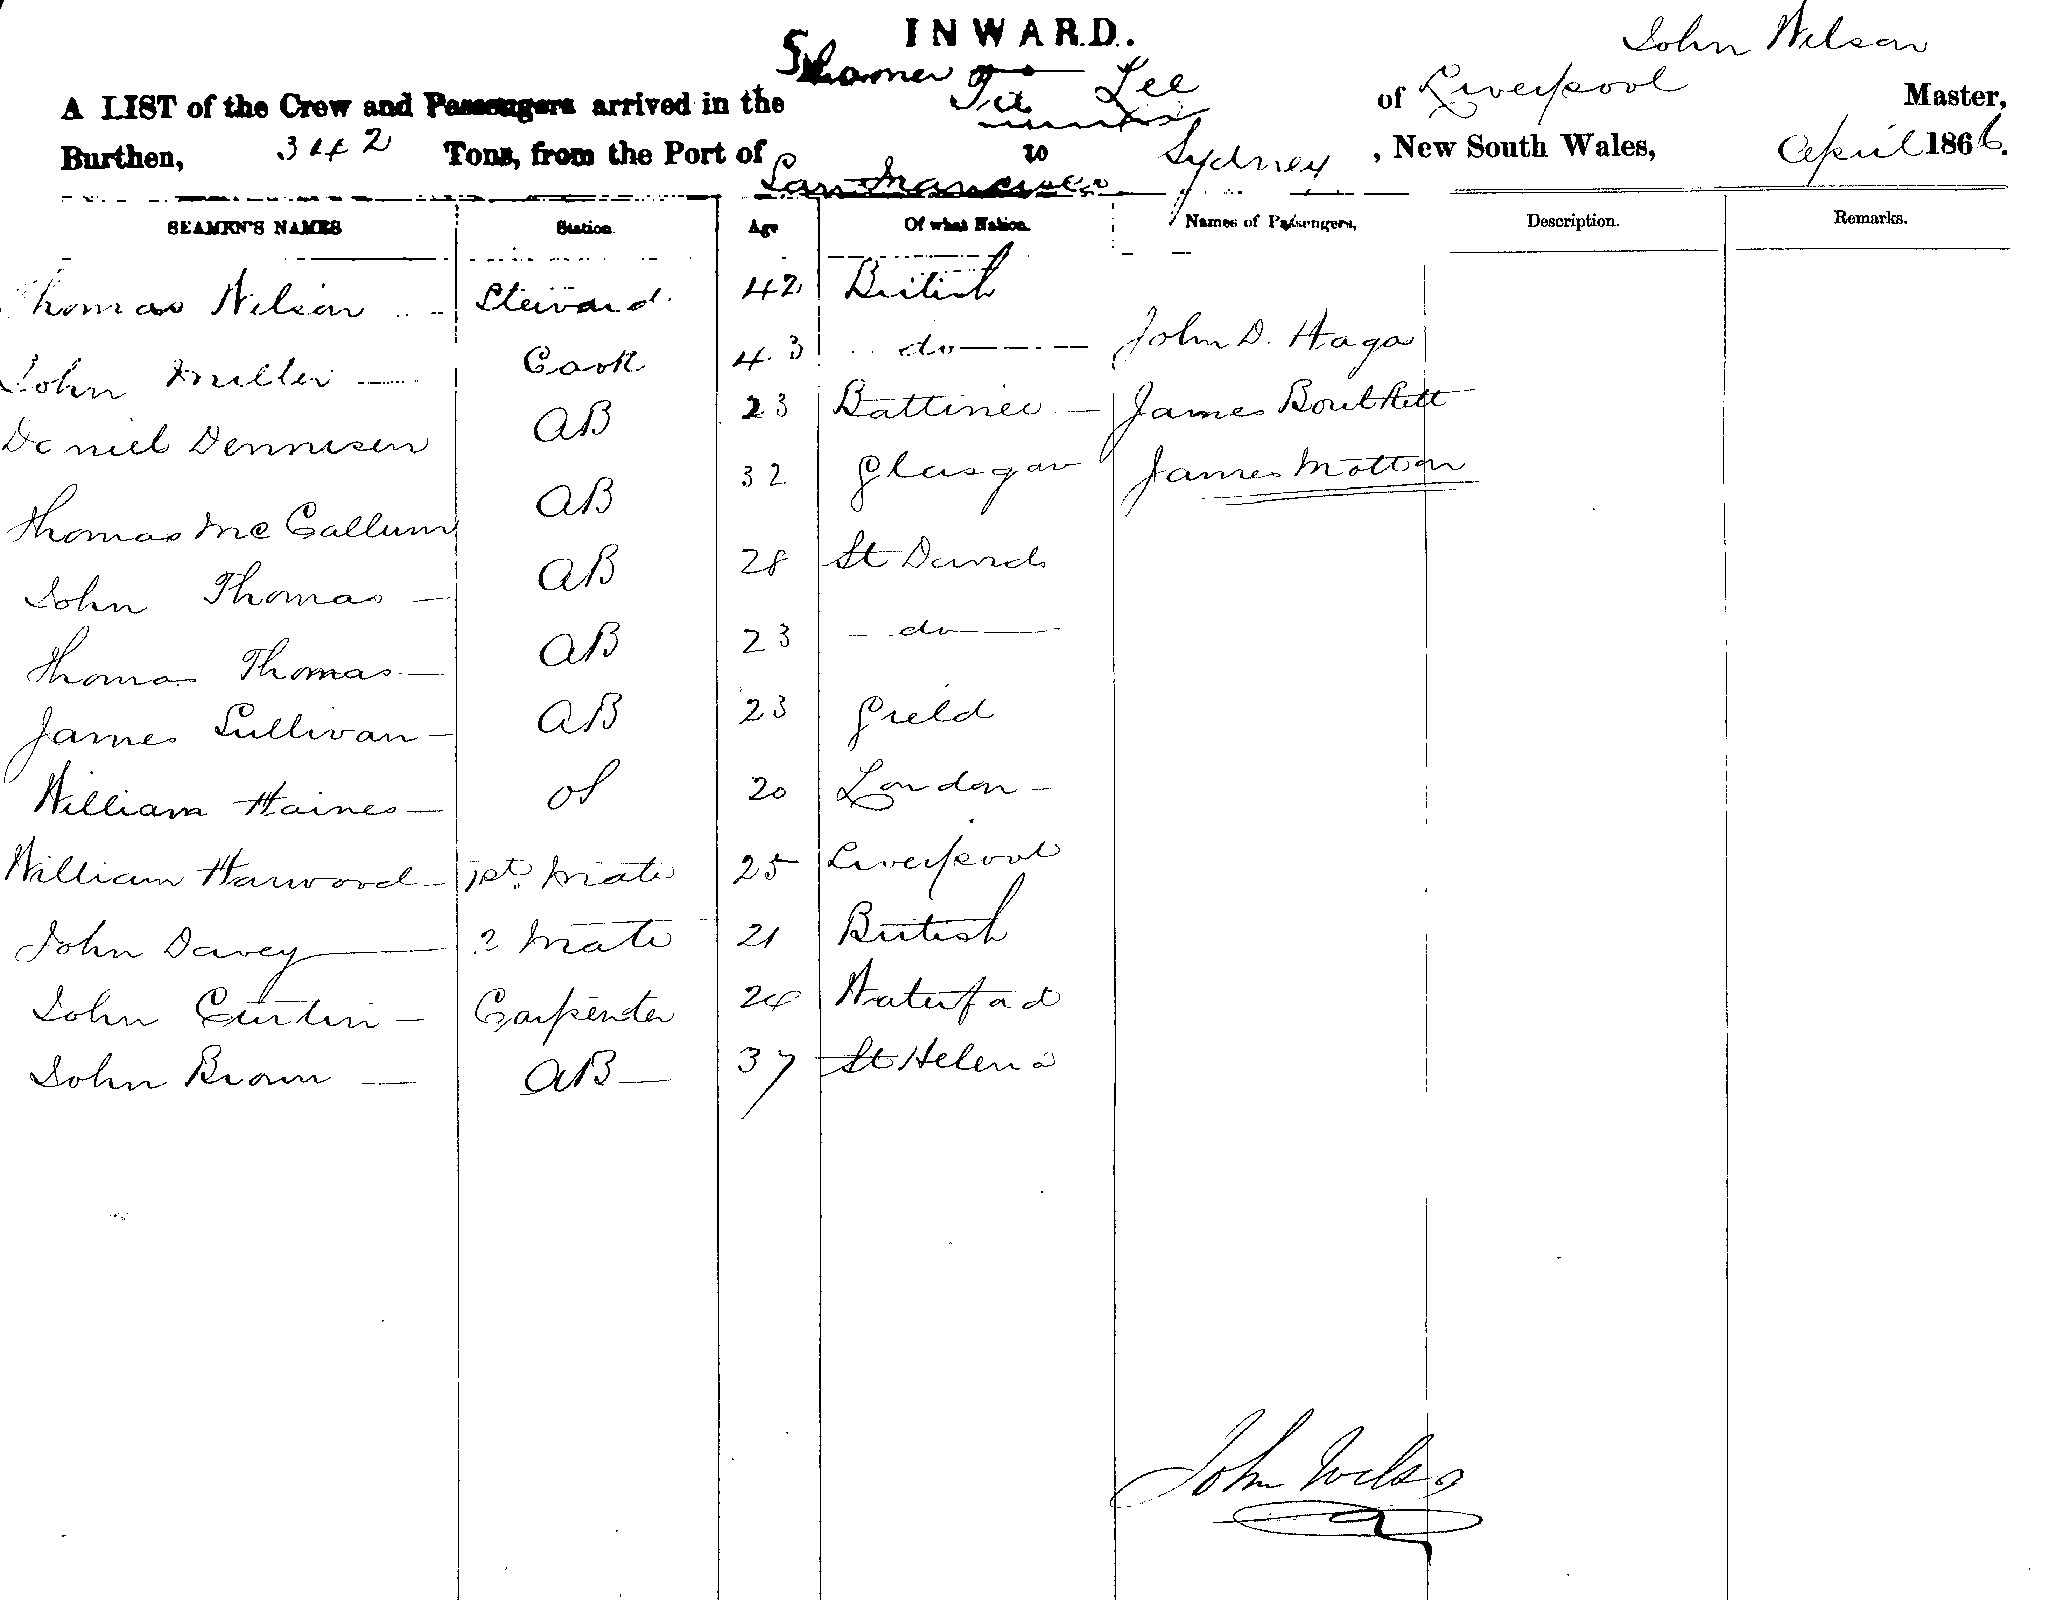 INWARD.
John Wilson
A LIST of the Crew and Passengers arrived in the Lee of Liverpool Master,
Burthen, 342 Tons, from the Port of San Francisco to Sydney, New South Wales, April 1866.
SEAMEN'S NAMES Station Age Of what Nation. Names of Passengers, Description. Remarks.
Thomas Wilson Steward 42 British
John Miller Cook 43 do John D. Haga
Daniel Dennisen AB 23 James
Thomas McCallum AB 32 Glasgow James
John Thomas AB 28 St Davids
Thomas Thomas AB 23 do
James Sullivan AB 23
William Haines OS 20 London
William Harwood 1st Mate 25 Liverpool
John Davey 2 Mate 21 British
John Curtin Carpenter 24 Waterford
John Brown AB 37 St Helena
John Wilson